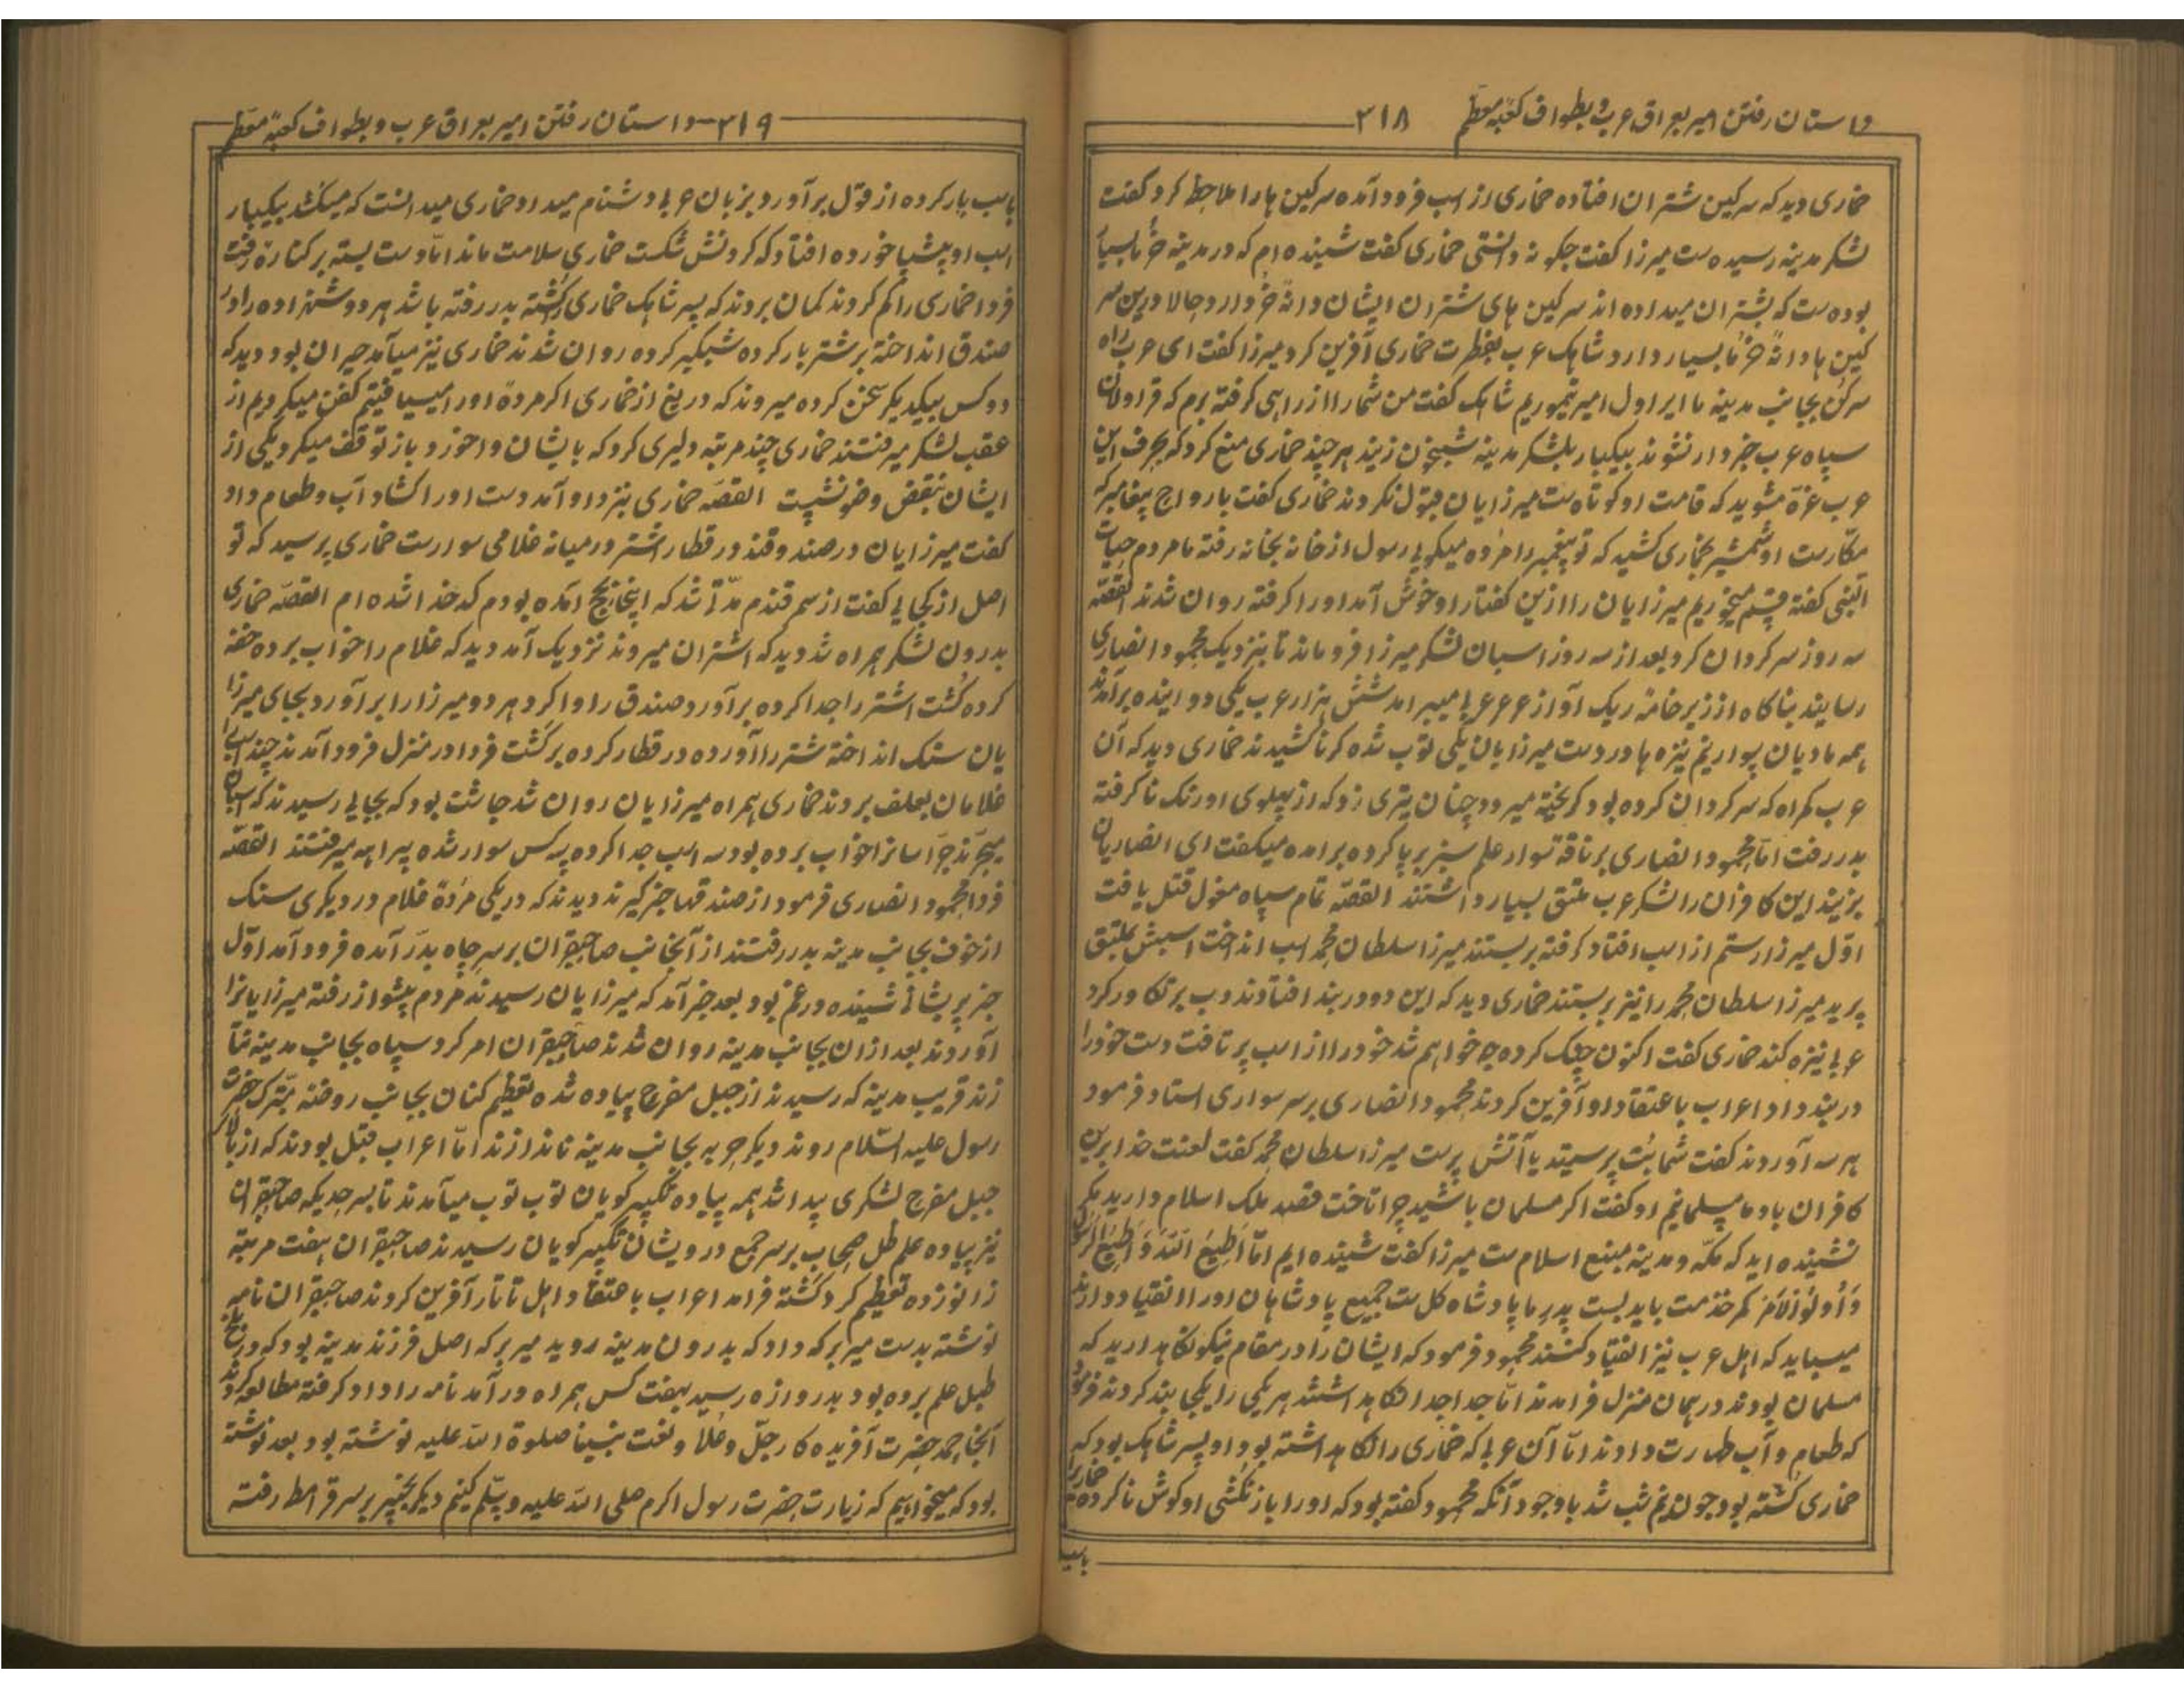 داستان رفتن امیر بعراق عرب و بطواف کعبه معظم ۲۱۸
خماری دید که سرکین شتران افتاده خماری از اسب فرود آمده سرکین هارا ملاحظ کرد گفت
لشکر مدینه رسیده ست میرزا گفت چکونه دانستی خماری گفت شنیده ام که در مدینه خرما بسیار
بوده ست که بشتران میداده اند سرکین های شتران ایشان دانهٔ خرما دارد حالا درین سر
کین ها دانهٔ خرما بسیار دارد شاهک عرب بفطرت خماری آفرین کرد میرزا کفت ای عرب راه
سرکن بجانب مدینه ما ایر اول امیر تیموریم شاهک گفت من شمارا از راهی گرفته برم که قراولان
سپاه عرب خبردار نشوند بیکبار بلشکر مدینه شبیخون زنید هرچند خماری منع کرد که بحرف این
عرب غره مشوید که قامت او کوتاه ست میرزایان قبول نکردند خماری گفت بارواح پیغامبر که
مکار ست او شمشیر بخماری کشید که تو پیغمبر را مرده میکویی رسول از خانه بخانه رفته ما مردم حیات
النبی کفته قسم میخوریم میرزایان را ازین کفتار او خوش آمد او را کرفته روان شدند القصه
سه روز سرکردان کرد بعد از سه روز اسبان لشکر میرزا فروماند تا بنزدیک محمود انصاری
رسانید بناکاه از زیر خامهٔ ریک آواز عرعر میبرامد شش هزار عرب یکی دو اینده برآمدند
همه مادیان سوار نیم نیزه ها در دست میرزایان یکی توب شده کرنا کشیدند خماری دید که آن
عرب کمراه که سرکردان کرده بود کریخته میرود چنان تیری زد که از پهلوی او رنک ناکرفته
بدر رفت اما محمود انصاری بر ناقه سوار علم سبز برپا کرده برامده میکفت ای انصاریان
بزنید این کافران را لشکر عرب ملتق بسیار داشتند القصه تمام سپاه مغول قتل یافت
اول میرزا رستم از اسب افتاد کرفته بربستند میرزا سلطان محمد اسب انداخت اسبش بملتق
پرید میرزا سلطان محمد را نیز بربستند خماری دید که این دو در بند افتادند
نیزه کند خماری گفت اکنون جنک کرده چه خواهم شد خود را از اسب پرتافت دست خود را
در بند داد اعراب باعتقاد او آفرین کردند محمود انصاری بر سر سواری استاد فرمود
هر سه آوردند کفت شما بت پرستید یا آتش پرست میرزا سلطان محمد کفت لعنت خدا برین
کافران باد ما مسلمانیم او کفت اکر مسلمان باشید چرا تاخت قصد ملک اسلام دارید مکر
نشنیده اید که مکه و مدینه منبع اسلام ست میرزا کفت شنیده ایم اما اطیع الله و اطیع الرسول
و اولو الامر کمر خدمت باید بست پدر ما پادشاه کل ست جمیع پادشاهان او را انقیاد دارند
میباید که اهل عرب نیز انقیاد کنند محمود فرمود که ایشان را در مقام نیکو نکاهدارید که
مسلمان بودند در همان منزل فرامدند اما جدا جدا نکاهداشتند هر یکی را یکجا بند کردند فرمود
که طعام و آب طهارت دادند اما آن عربی که خماری را نکاهداشته بود او پسر شاهک بود که
خماری کشته بود چون نیم شب شد باوجود آنکه محمود کفته بود که او را باز نکشی او کوش ناکرده خماریرا
باسب
۲۱۹ داستان رفتن امیر بعراق عرب و بطواف کعبهٔ معظم
باسب بار کرده از قول برآورد بزبان عربی دشنام میداد خماری میدانست که میکشد بیکبار
اسب او پیشپا خورده افتاد که کردنش شکست خماری سلامت ماند اما دست بسته بر کناره رفت
فردا خماری را کم کردند کمان بردند که پسر شاهک خماری را کشته بدر رفته باشد هر دو شهزاده را در
صندق انداخته بر شتر بار کرده شبکیر کرده روان شدند خماری نیز میآمد حیران بود دید که
دو کس بیکدیکر سخن کرده میروند که دریغ از خماری اکر مردهٔ او را میسیافتیم کفن میکردیم از
عقب لشکر میرفتند خماری چند مرتبه دلیری کرد که بایشان واخورد باز توقف میکرد یکی از
ایشان بنقض وضو نشست القصه خماری بنزد او آمد دست او را کشاد آب و طعام داد
کفت میرزایان در صندوقند در قطار اشتر در میانه غلامی سوار ست خماری پرسید که تو
اصل از کجایی کفت از سمرقندم مدتی شد که اینجا بحج آمده بودم کدخدا شده ام القصه خماری
بدرون لشکر همراه شد دید که اشتران میروند نزدیک آمد دید که غلام را خواب برده خفه
کرده کشت اشتر را جدا کرده برآورد صندق را وا کرد هر دو میرزا را برآورد بجای میرزا
یان سنک انداخته شتر را آورده در قطار کرده برکشت فردا در منزل فرود آمدند چند
غلامان بعلف بردند خماری همراه میرزایان روان شد چاشت بود که بجایی رسیدند که اسپان
میچرند چراسانرا خواب برده بود سه اسب جدا کرده سه کس سوار شده براهه میرفتند القصه
فردا محمود انصاری فرمود از صندقها خبر کیرند دیدند که در یکی مردهٔ غلام در دیکری سنک
از خوف بجانب مدینه بدر رفتند از آنجانب صاحبقران بر سر چاه بدر آمده فرود آمد اول
خبر پریشانی شنیده در غم بود بعد خبر آمد که میرزایان رسیدند مردم پیشواز رفته میرزایانرا
آوردند بعد از ان بجانب مدینه روان شدند صاحبقران امر کرد سپاه بجانب مدینه
زند قریب مدینه که رسیدند از جبل مفرح پیاده شده تعظیم کنان بجانب روضه متبرک حضرت
رسول علیه السلام روند دیکر حربه بجانب مدینه نااندازند اما اعراب قبل بودند که از بالای
جبل مفرح لشکری پیدا شد همه پیاده تکبیر کویان توب توب میآمدند تا بسرحدیکه صاحبقران
نیز پیاده علم ظل صحاب بر سر جمع درویشان تکبیر کویان رسیدند صاحبقران هفت مرتبه
زانو زده تعظیم کرد کشته فرامد اعراب باعتقاد اهل تاتار آفرین کردند صاحبقران نامه
نوشته بدست میر برکه داد که بدرون مدینه روید میر برکه اصل فرزند مدینه بود که در بلخ
طبل علم برده بود بدروازه رسید بهفت کس همراه درآمد نامه را داد کرفته مطالعه کردند
آنجا حمد حضرت آفریده کار جل و علا و نعت نبینا صلوة الله علیه نوشته بود بعد نوشته
بود که میخواهیم که زیارت حضرت رسول اکرم صلی الله علیه وسلم کنیم دیکر بخیبر بر سر قرامطا رفته